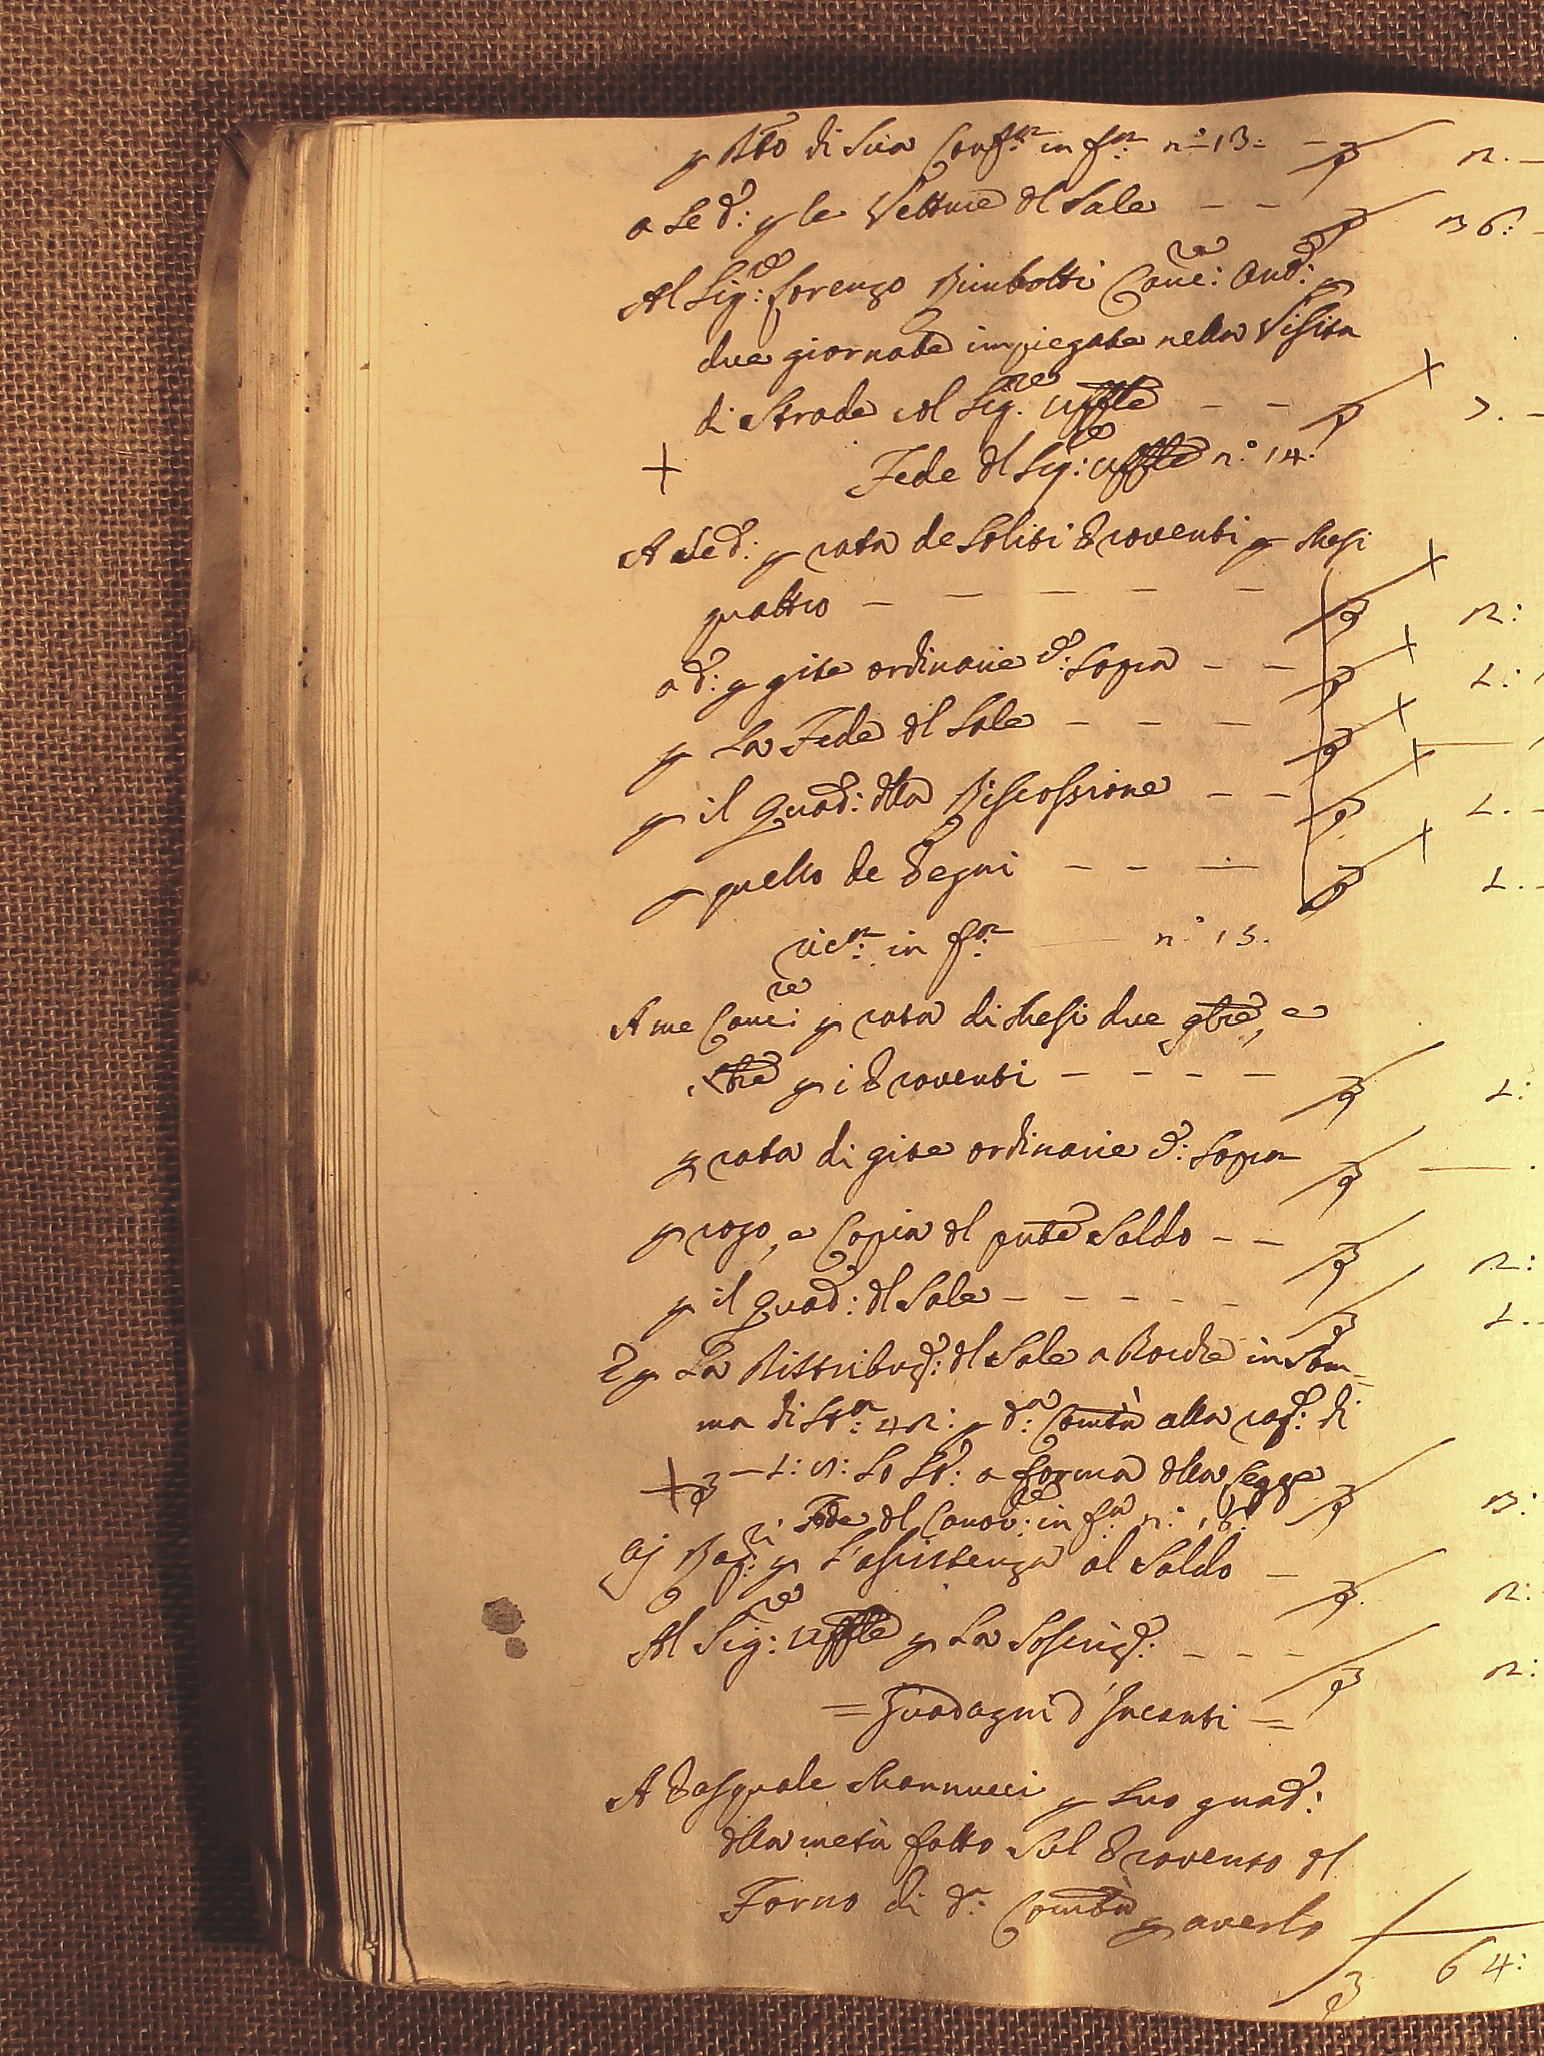 p Atto di sua Confne in fza n° 13: — 2. —
a Se d: p le Vetture dl Sale — — 36: —
Al Sigr: Lorenzo Bimbotti Cancre: And: p
due giornate impiegate nella Visita
di Strade col Sigre: Uffle — — 7. —
Fede dl Sigre: Uffle n° 14.
A Se d: p rata de soliti Proventi p Mesi
quattro — — — — — 2:
a d: p gite ordinarie d: Sopra — — L:
p La Fede dl Sale — — —
p il Quad: dlla Riscossione — — L. —
p quello de Pegni — — — L. —
ricta in fza n° 15.
A me Cancre: p rata di Mesi due, e
p i Proventi — — — — L:
p rata di gite ordinarie d: Sopra
p rogo, e Copia dl pnte Saldo — — 2:
p il Quad: dl Sale — — — — — L. —
E p La Distribuz: dl Sale a Bocche in Som=
ma di Sta: 42: p da: Comtà alla rag: di
— L: So St: a forma dlla Legge 3:
Fede dl Canovre: in fza n: 16:
Aj Ragi: p L'assistenza al Saldo — 2:
Al Sigre: Uffle p La Soscriz: — — — 2:
= Guadagni d'Incanti =
A Pasquale Mannucci p suo guad:
dlla metà fatto sul Provento dl
Forno di da: Comtà p averlo
64: